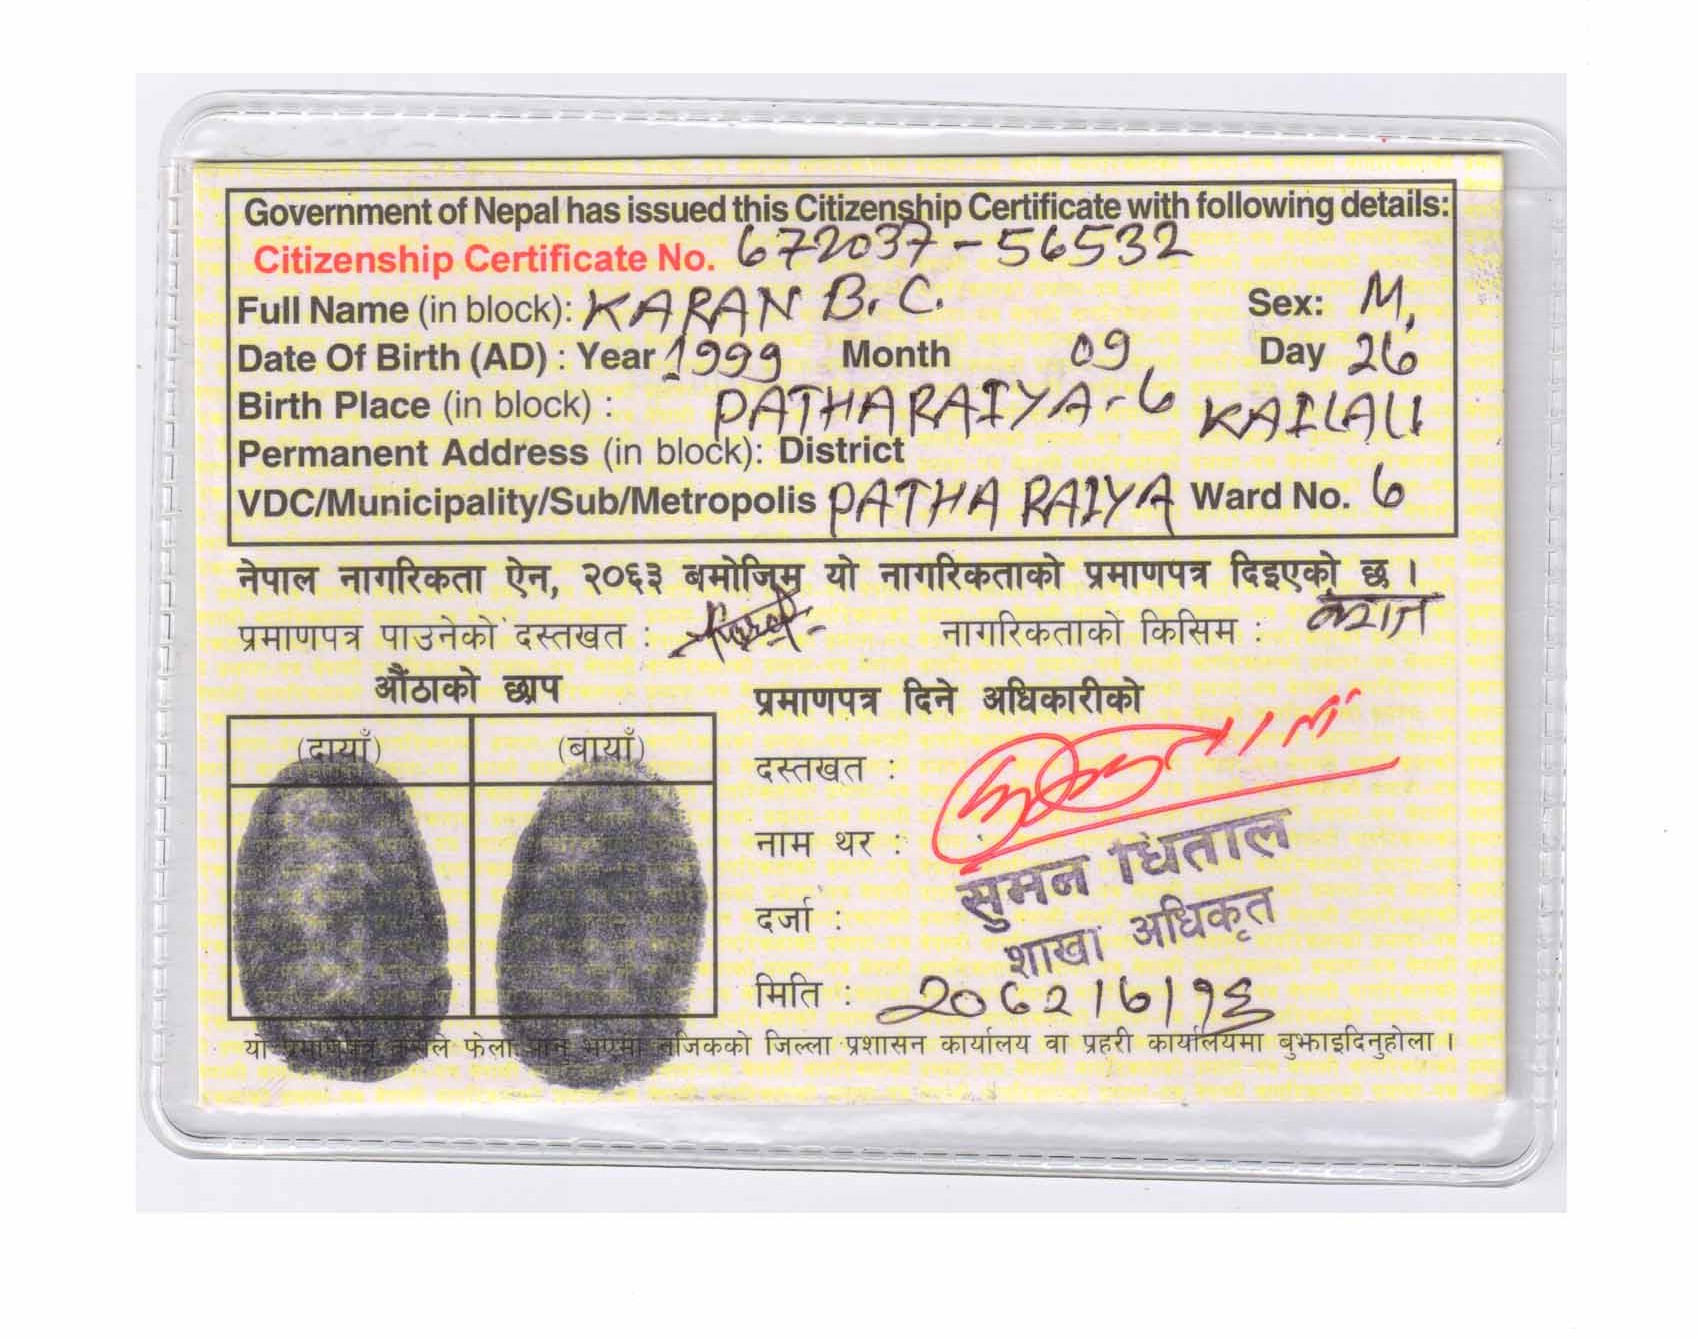 Government of Nepal has issued this Citizenship Certificate with following details:
Citizenship Certificate No. 672037-56532
Full Name (in block): KARAN B.C. Sex: M.
Date Of Birth (AD) : Year 1999 Month 09 Day 26
Birth Place (in block) : PATHARAIYA-6 KAILALI
Permanent Address (in block): District
VDC/Municipality/Sub/Metropolis PATHARAIYA Ward No. 6
नेपाल नागरिकता ऐन, २०६३ बमोजिम यो नागरिकताको प्रमाणपत्र दिइएको छ ।
प्रमाणपत्र पाउनेको दस्तखत : नागरिकताको किसिम :
औंठाको छाप
(दायाँ) (बायाँ)
प्रमाणपत्र दिने अधिकारीको
दस्तखत :
नाम थर : सुमन धिताल
दर्जा : शाखा अधिकृत
मिति :
यो प्रमाणपत्र कसैले फेला पारेमा नजिकको जिल्ला प्रशासन कार्यालय वा प्रहरी कार्यालयमा बुझाइदिनुहोला ।